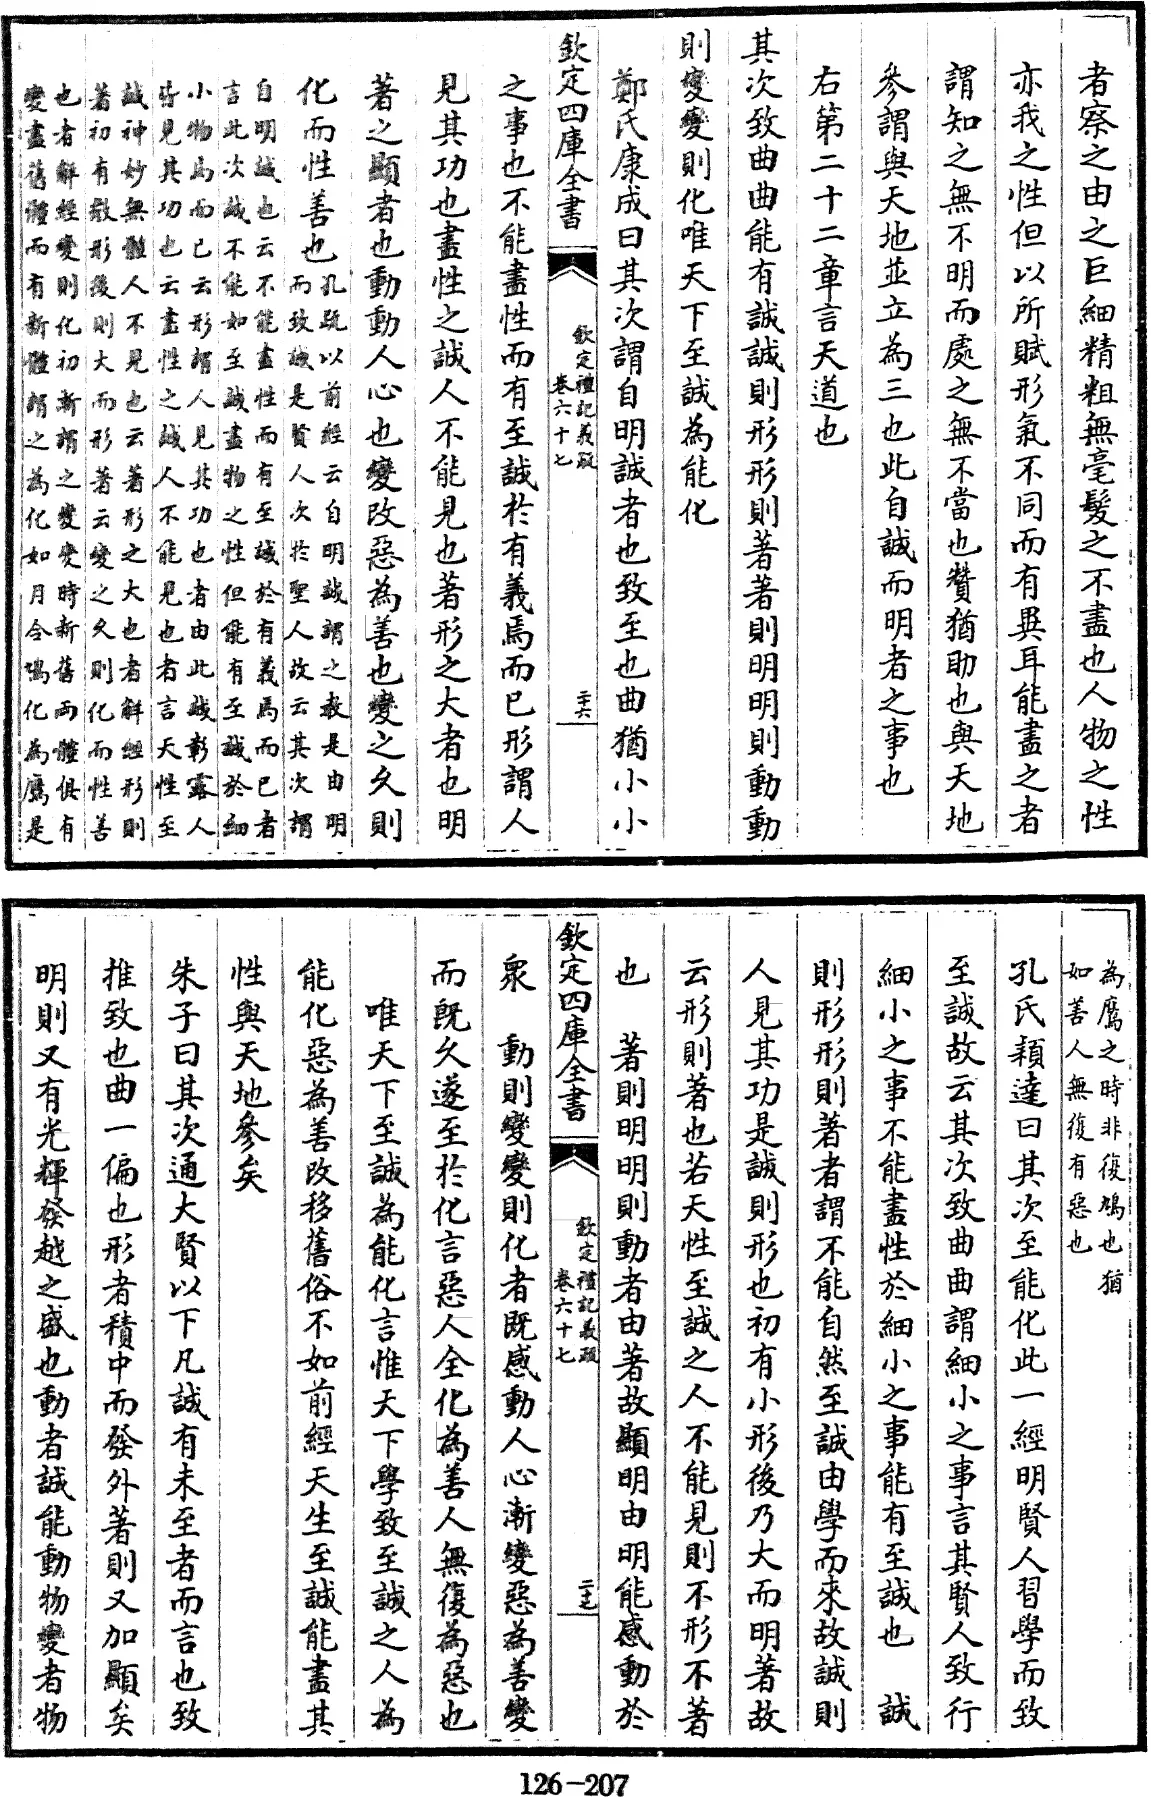 者察之由之巨細精粗無毫髮之不盡也人物之性
亦我之性但以所賦形氣不同而有異耳能盡之者
謂知之無不明而處之無不當也贊猶助也與天地
參謂與天地並立為三也此自誠而明者之事也
右第二十二章言天道也
其次致曲曲能有誠誠則形形則著著則明明則動動
則變變則化唯天下至誠為能化
鄭氏康成曰其次謂自明誠者也致至也曲猶小小
欽定四庫全書
欽定禮記義疏
卷六十七
二十六
之事也不能盡性而有至誠於有義焉而已形謂人
見其功也盡性之誠人不能見也著形之大者也明
著之顯者也動動人心也變改惡為善也變之久則
化而性善也
孔疏以前經云自明誠謂之教是由明
而致誠是賢人次於聖人故云其次謂
自明誠也云不能盡性而有至誠於有義焉而已者
言此次誠不能如至誠盡物之性但能有至誠於細
小物焉而已云形謂人見其功也者由此誠彰露人
皆見其功也云盡性之誠人不能見也者言天性至
誠神妙無體人不見也云著形之大也者解經形則
著初有微形後則大而形著云變之久則化而性善
也者解經變則化初漸謂之變變時新舊兩體俱有
變盡舊體而有新體謂之為化如月令鳩化為鷹是
為鷹之時非復鳩也猶
如善人無復有惡也
孔氏穎達曰其次至能化此一經明賢人習學而致
至誠故云其次致曲曲謂細小之事言其賢人致行
細小之事不能盡性於細小之事能有至誠也 誠
則形形則著者謂不能自然至誠由學而來故誠則
人見其功是誠則形也初有小形後乃大而明著故
云形則著也若天性至誠之人不能見則不形不著
也 著則明明則動者由著故顯明由明能感動於
欽定四庫全書
欽定禮記義疏
卷六十七
二十七
衆 動則變變則化者既感動人心漸變惡為善變
而既久遂至於化言惡人全化為善人無復為惡也
唯天下至誠為能化言惟天下學致至誠之人為
能化惡為善改移舊俗不如前經天生至誠能盡其
性與天地參矣
朱子曰其次通大賢以下凡誠有未至者而言也致
推致也曲一偏也形者積中而發外著則又加顯矣
明則又有光輝發越之盛也動者誠能動物變者物
126-207